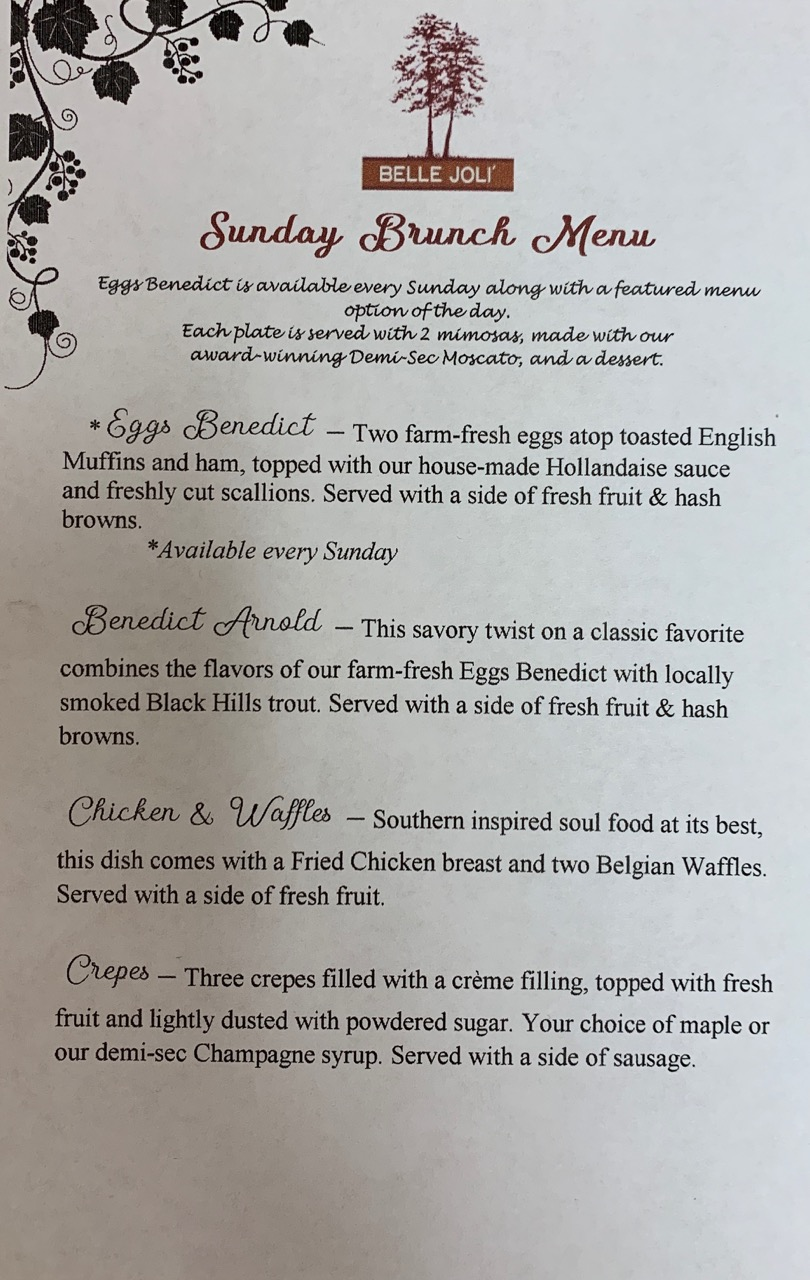 BELLE JOLI'
Sunday Brunch Menu
Eggs Benedict is available every Sunday along with a featured menu
option of the day.
Each plate is served with 2 mimosas, made with our
award-winning Demi-Sec Moscato, and a dessert.
*Eggs Benedict – Two farm-fresh eggs atop toasted English
Muffins and ham, topped with our house-made Hollandaise sauce
and freshly cut scallions. Served with a side of fresh fruit & hash
browns.
*Available every Sunday
Benedict Arnold – This savory twist on a classic favorite
combines the flavors of our farm-fresh Eggs Benedict with locally
smoked Black Hills trout. Served with a side of fresh fruit & hash
browns.
Chicken & Waffles – Southern inspired soul food at its best,
this dish comes with a Fried Chicken breast and two Belgian Waffles.
Served with a side of fresh fruit.
Crepes – Three crepes filled with a crème filling, topped with fresh
fruit and lightly dusted with powdered sugar. Your choice of maple or
our demi-sec Champagne syrup. Served with a side of sausage.